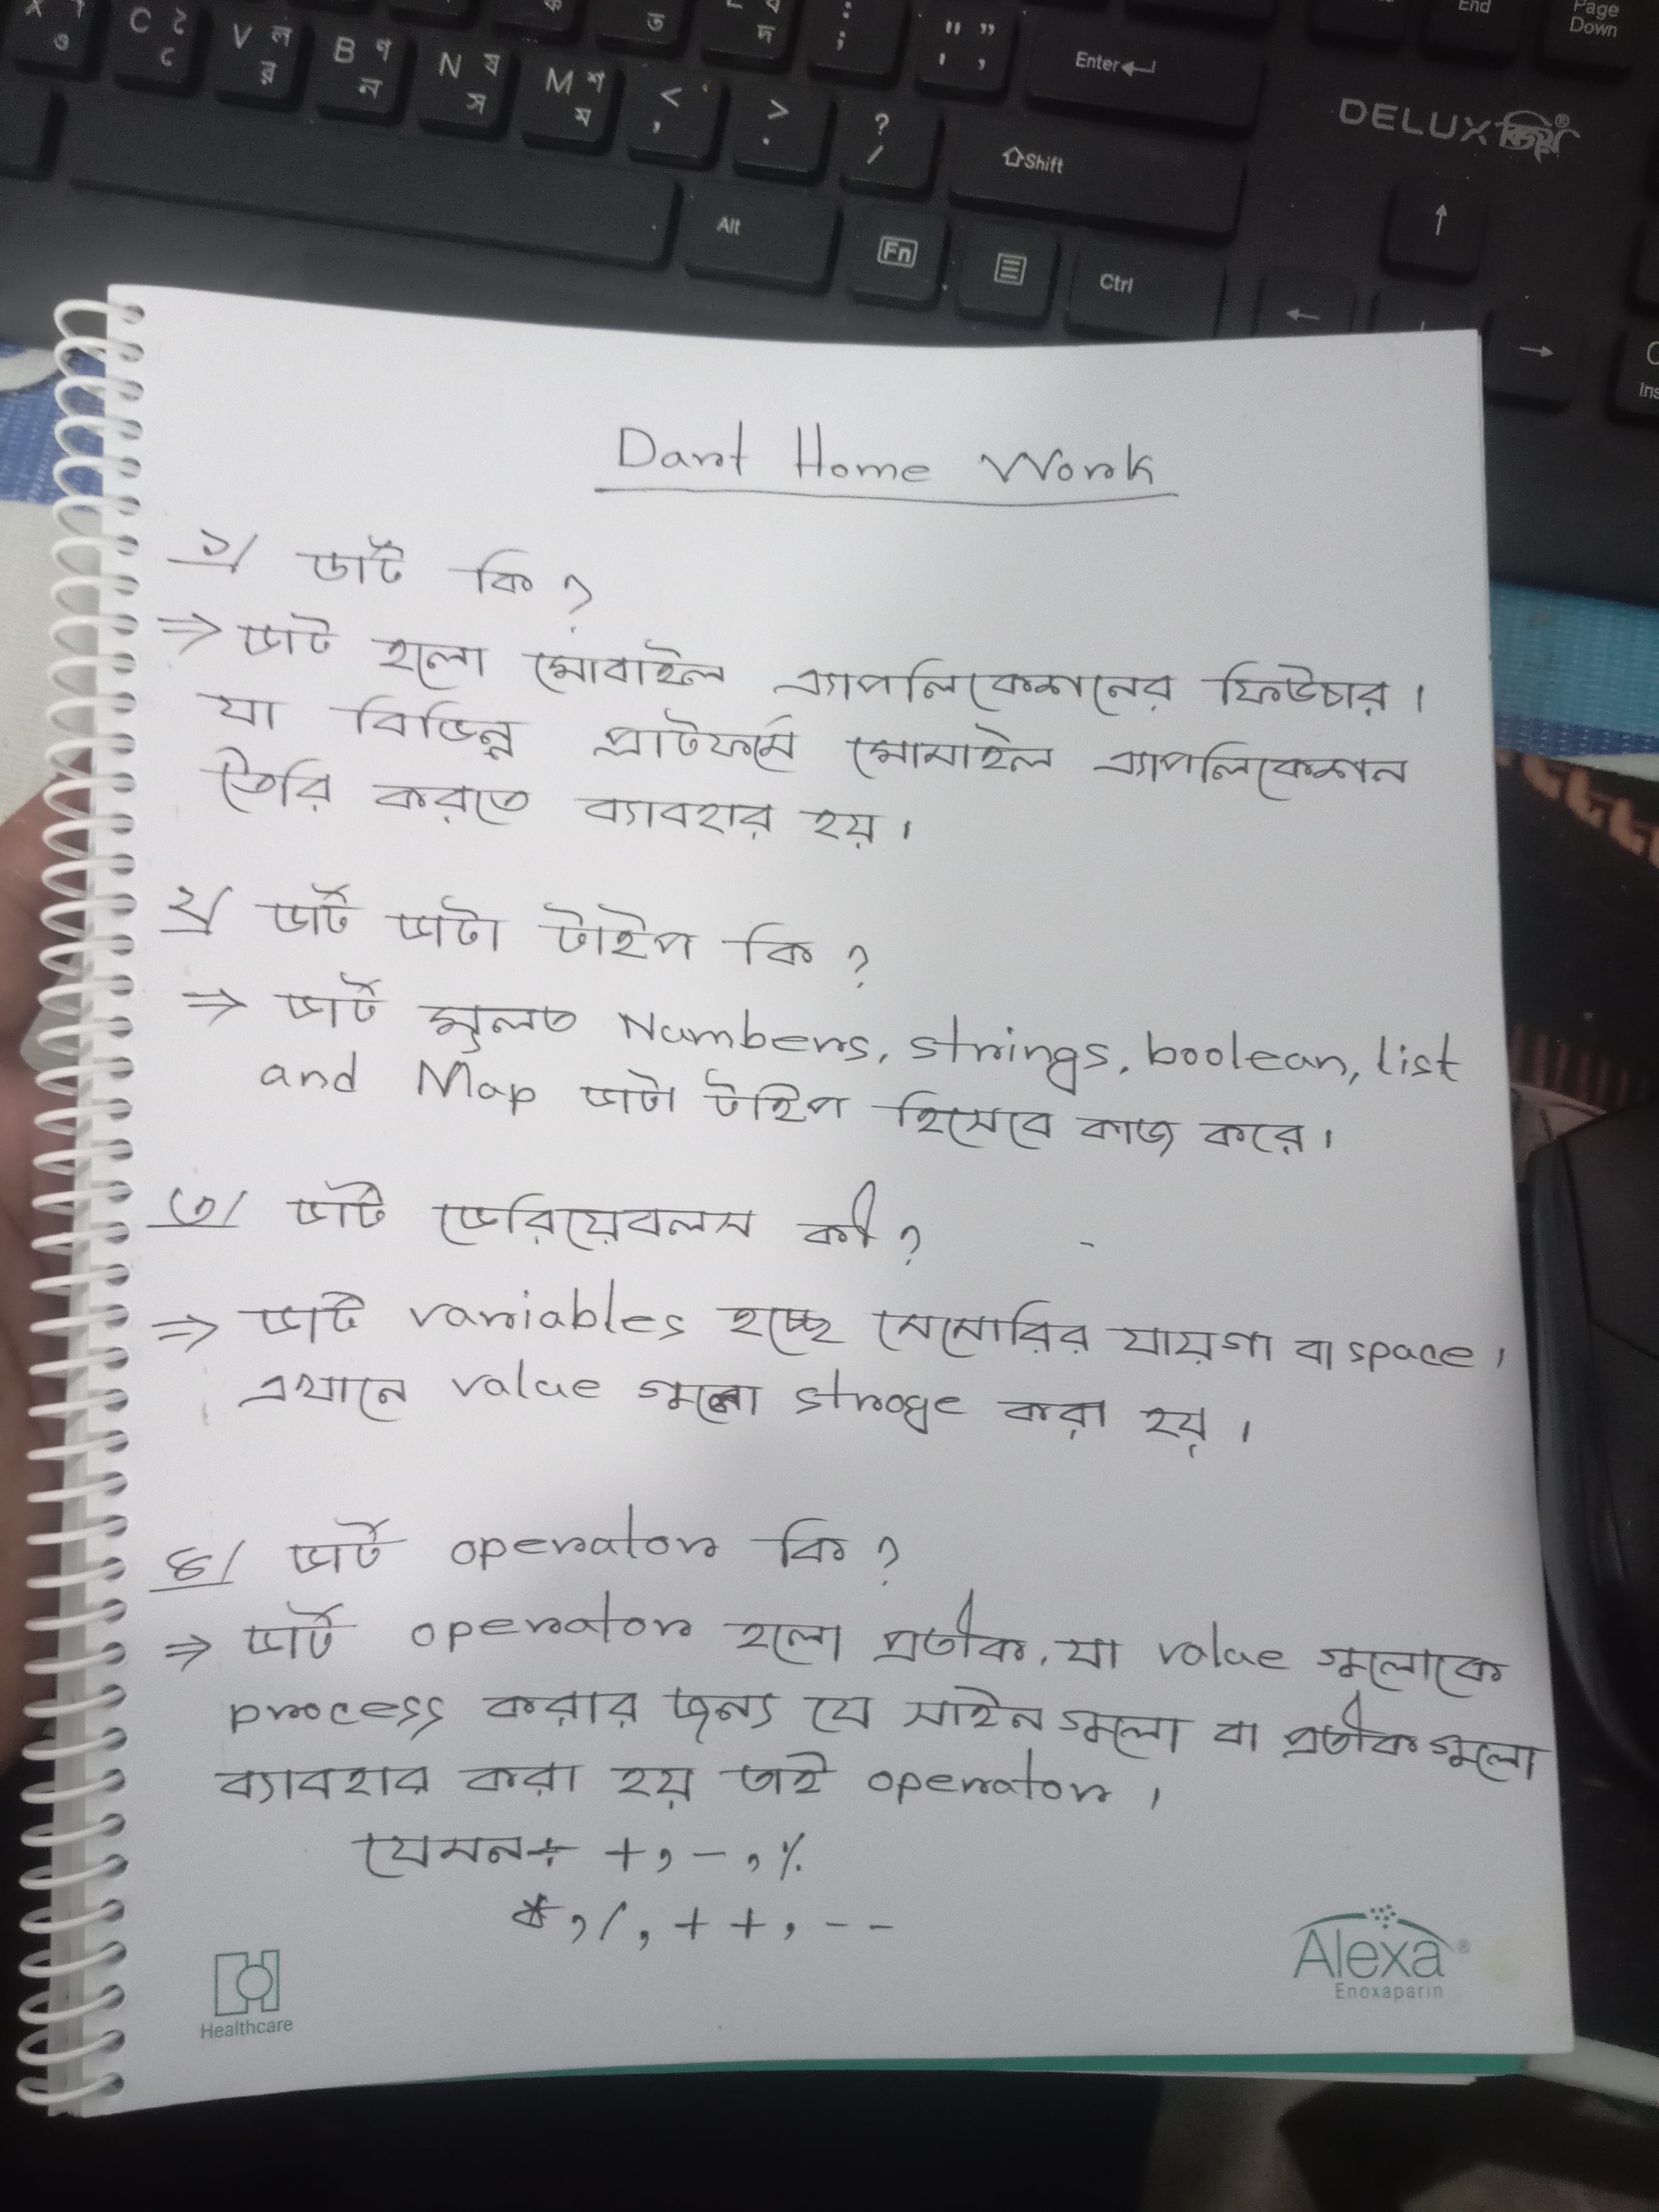 C
V ল র
B ণ ন
N ষ স
M শ ম
< ,
> .
? /
: ;
" "
' ,
Enter
End
Page Down
Shift
DELUX
Alt
Fn
Ctrl
Ins
Dart Home Work
১/ ডার্ট কি ?
⇒ ডার্ট হলো মোবাইল এ্যাপলিকেশনের ফিউচার ।
যা বিভিন্ন প্লাটফর্মে মোবাইল এ্যাপলিকেশন
তৈরি করতে ব্যাবহার হয় ।
২/ ডার্ট ডাটা টাইপ কি ?
⇒ ডার্ট মুলত Numbers, strings, boolean, list
and Map ডাটা টাইপ হিসেবে কাজ করে ।
৩/ ডার্ট ভেরিয়েবলস কী ?
⇒ ডার্ট variables হচ্ছে মেমোরির যায়গা বা space ।
এখানে value গুলো stroge করা হয় ।
৪/ ডার্ট operator কি ?
⇒ ডার্ট operator হলো প্রতীক, যা value গুলোকে
process করার জন্য যে সাইন গুলো বা প্রতীক গুলো
ব্যাবহার করা হয় তাই operator ।
যেমন÷ +, -, %
*, /, ++, --
Healthcare
Alexa®
Enoxaparin